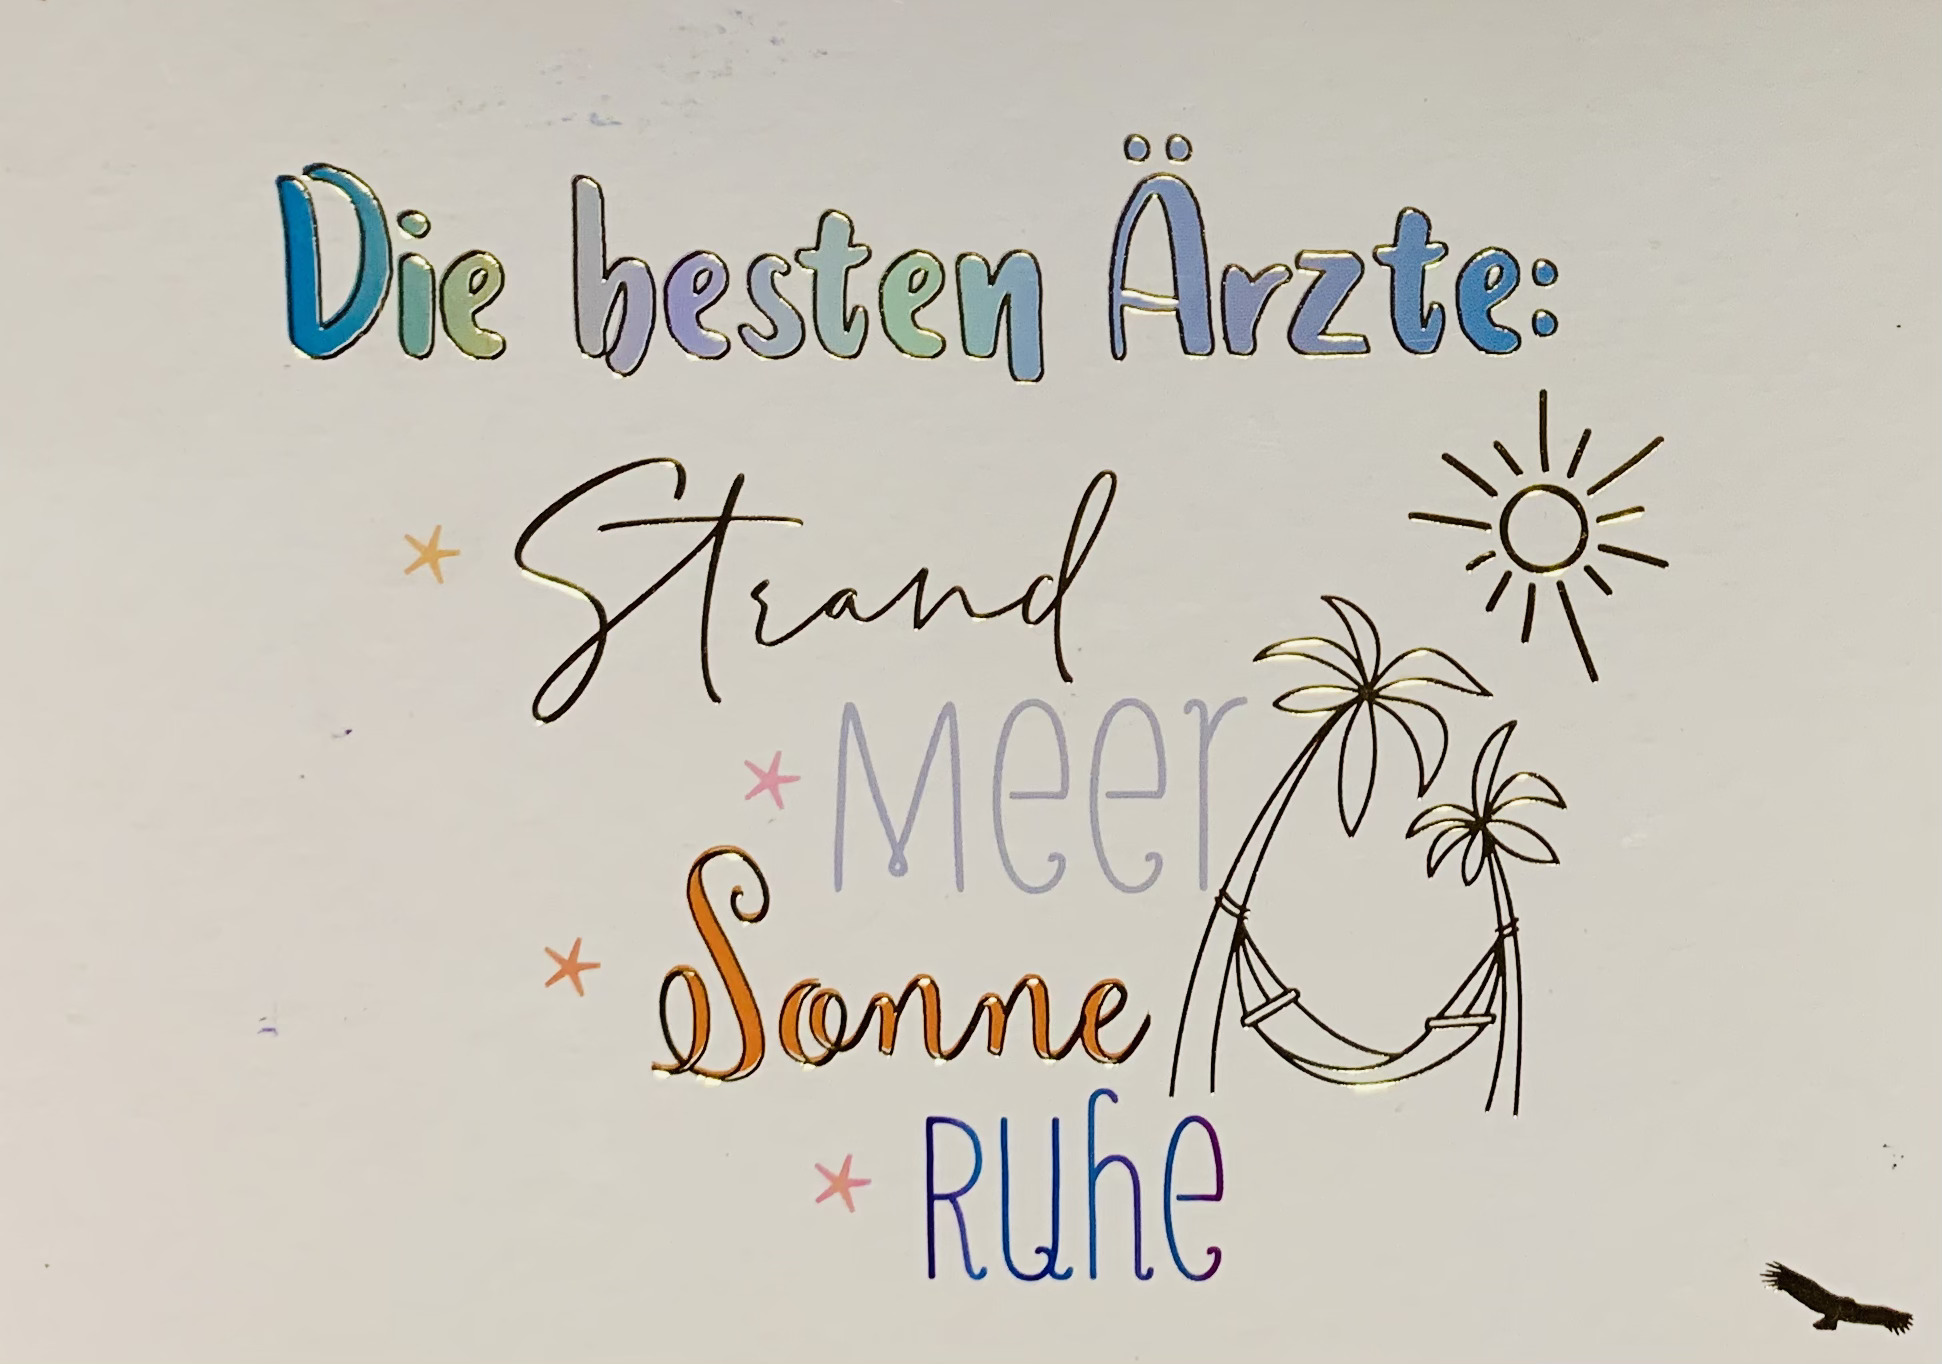 Die besten Ärzte:
Strand
Meer
Sonne
Ruhe